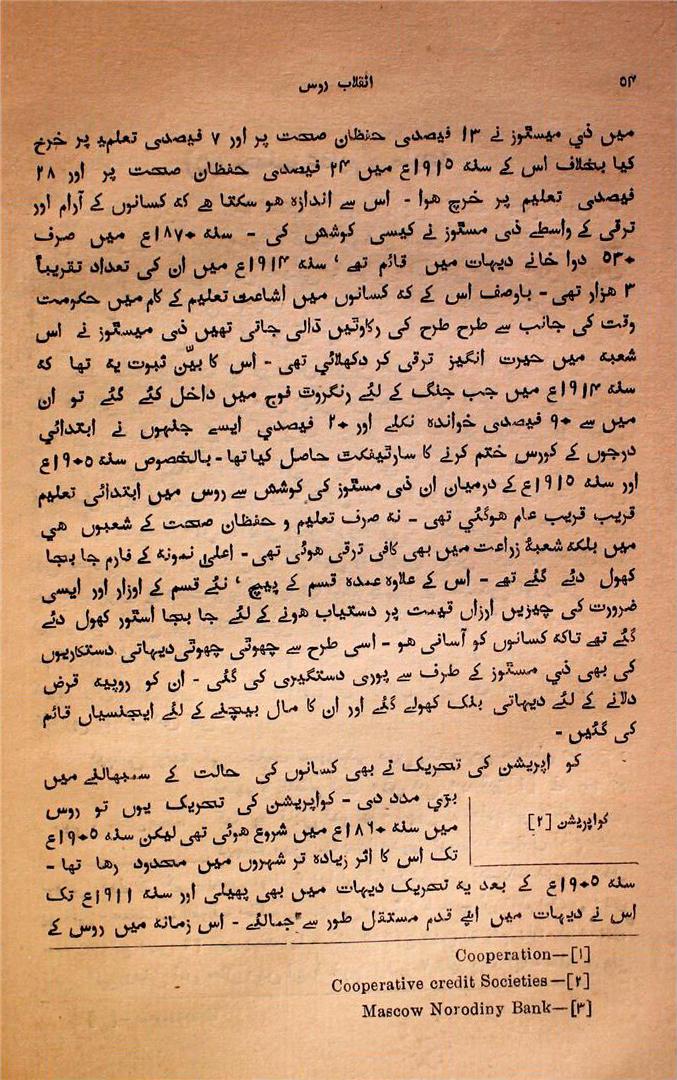 ۵۴
انقلاب روس
میں ذی میسٹوز نے ۱۳ فیصدی حفظان صحت پر اور ۷ فیصدی تعلیم پر خرچ
کیا بخلاف اس کے سنہ ۱۹۱۵ع میں ۲۴ فیصدی حفظان صحت پر اور ۲۸
فیصدی تعلیم پر خرچ ہوا - اس سے اندازہ ہو سکتا ہے کہ کسانوں کے آرام اور
ترقی کے واسطے ذی مسٹوز نے کیسی کوشش کی - سنہ ۱۸۷۰ع میں صرف
۵۳۰ دوا خانے دیہات میں قائم تھے ' سنہ ۱۹۱۴ع میں ان کی تعداد تقریباً
۳ ہزار تھی - باوصف اس کے کہ کسانوں میں اشاعت تعلیم کے کام میں حکومت
وقت کی جانب سے طرح طرح کی رکاوٹیں ڈالی جاتی تھیں ذی میسٹوز نے اس
شعبہ میں حیرت انگیز ترقی کر دکھلائی تھی - اس کا بیّن ثبوت یہ تھا کہ
سنہ ۱۹۱۴ع میں جب جنگ کے لئے رنگروٹ فوج میں داخل کئے گئے تو ان
میں سے ۹۰ فیصدی خواندہ نکلے اور ۲۰ فیصدی ایسے جنہوں نے ابتدائی
درجوں کے کورس ختم کرنے کا سارٹیفکٹ حاصل کیا تھا - بالخصوص سنہ ۱۹۰۵ع
اور سنہ ۱۹۱۵ع کے درمیان ان ذی مسٹوز کی کوشش سے روس میں ابتدائی تعلیم
قریب قریب عام ہوگئی تھی - نہ صرف تعلیم و حفظان صحت کے شعبوں ہی
میں بلکہ شعبۂ زراعت میں بھی کافی ترقی ہوئی تھی - اعلیٰ نمونہ کے فارم جا بجا
کھول دئے گئے تھے - اس کے علاوہ عمدہ قسم کے بیج ' نئے قسم کے اوزار اور ایسی
ضرورت کی چیزیں ارزاں قیمت پر دستیاب ہونے کے لئے جا بجا اسٹور کھول دئے
گئے تھے تاکہ کسانوں کو آسانی ہو - اسی طرح سے چھوٹی چھوٹی دیہاتی دستکاریوں
کی بھی ذی مسٹوز کے طرف سے پوری دستگیری کی گئی - ان کو روپیہ قرض
دلانے کے لئے دیہاتی بنک کھولے گئے اور ان کا مال بیچنے کے لئے ایجنسیاں قائم
کی گئیں -
کو اپریشن کی تحریک نے بھی کسانوں کی حالت کے سنبھالنے میں
کواپریشن [۲]
بڑی مدد دی - کواپریشن کی تحریک یوں تو روس
میں سنہ ۱۸۶۰ع میں شروع ہوئی تھی لیکن سنہ ۱۹۰۵ع
تک اس کا اثر زیادہ تر شہروں میں محدود رہا تھا -
سنہ ۱۹۰۵ع کے بعد یہ تحریک دیہات میں بھی پھیلی اور سنہ ۱۹۱۱ع تک
اس نے دیہات میں اپنے قدم مستقل طور سے جمالئے - اس زمانہ میں روس کے
Cooperation—[۱]
Cooperative credit Societies—[۲]
Mascow Norodiny Bank—[۳]